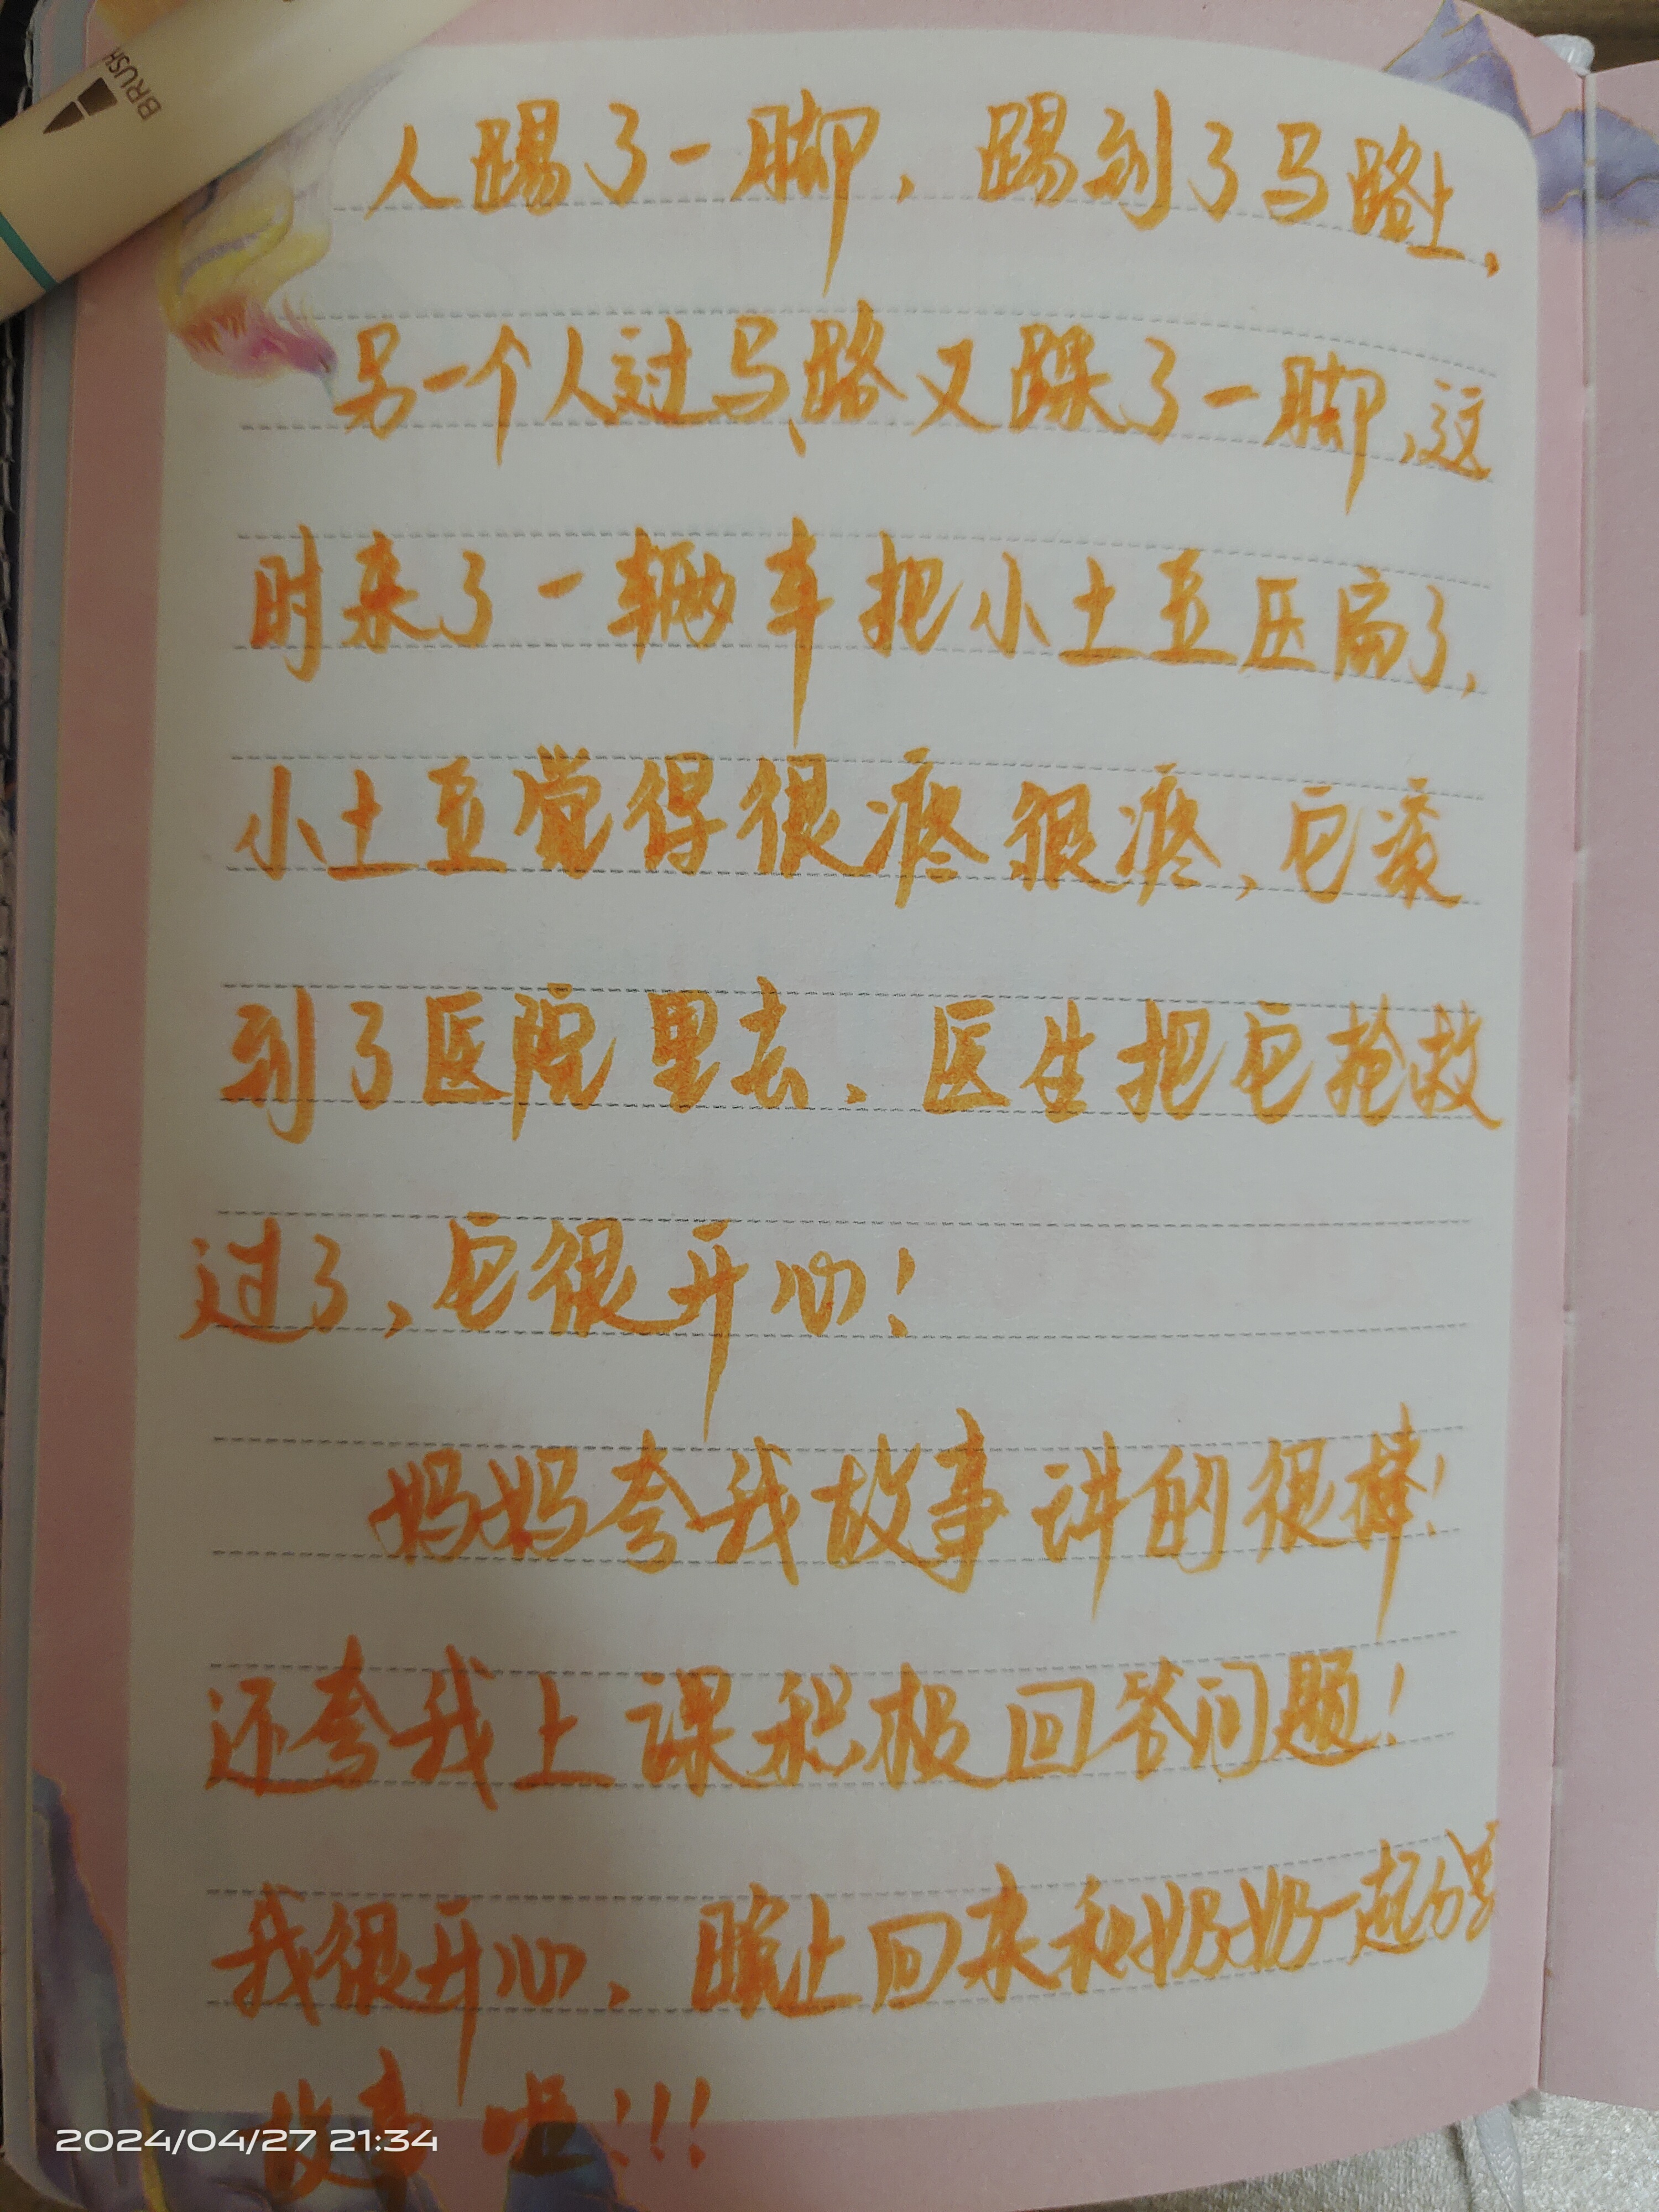 BRUSH
人踢了一脚，踢到了马路上，
另一个人过马路又踩了一脚，这
时来了一辆车把小土豆压扁了，
小土豆觉得很疼很疼，它滚
到了医院里去，医生把它抢救
过了，它很开心！
妈妈夸我故事讲的很棒！
还夸我上课积极回答问题！
我很开心，晚上回来和奶奶一起分享
故事啦！！！
2024/04/27 21:34